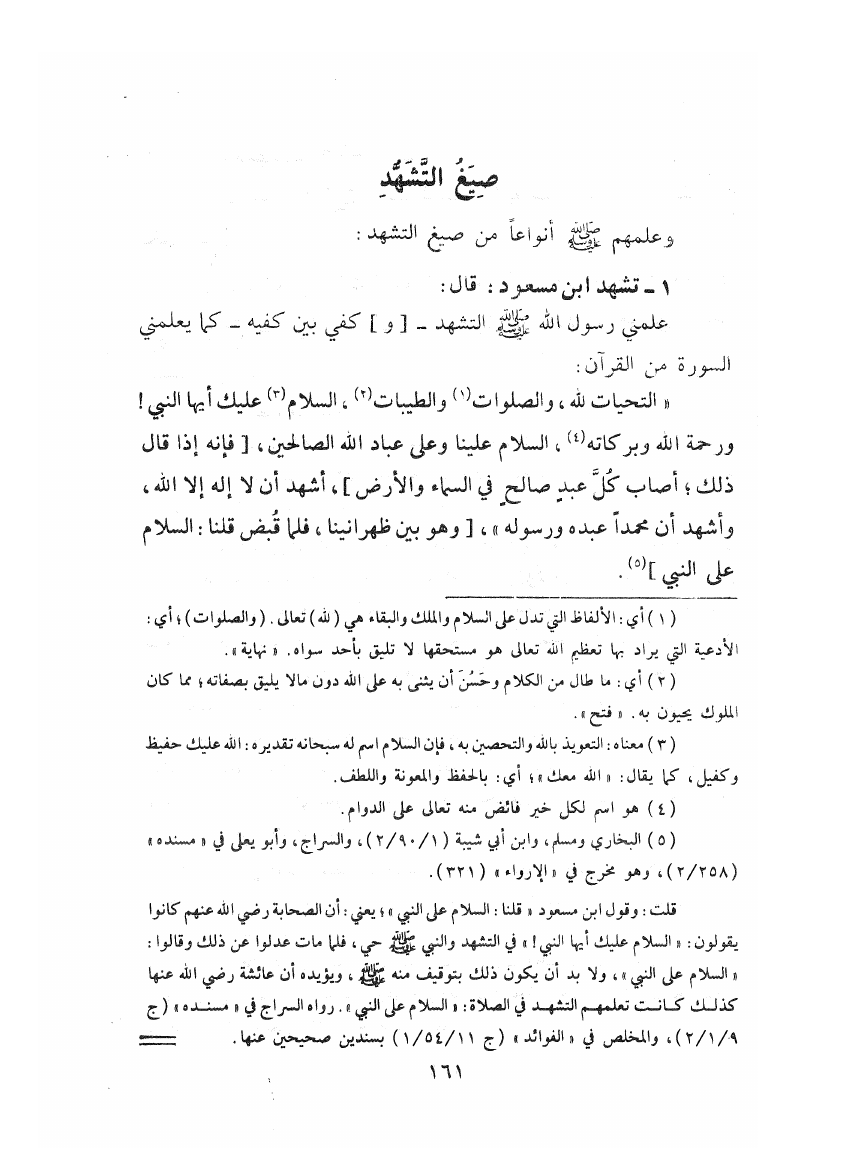 صِيَغُ التَّشَهُّدِ
وعلمهم ﷺ أنواعاً من صيغ التشهد :
١ ـ تشهد ابن مسعود : قال :
علمني رسول الله ﷺ التشهد ـ [ و ] كفي بين كفيه ـ كما يعلمني
السورة من القرآن :
« التحيات لله ، والصلوات(١) والطيبات(٢) ، السلام(٣) عليك أيها النبي !
ورحمة الله وبركاته(٤) ، السلام علينا وعلى عباد الله الصالحين ، [ فإنه إذا قال
ذلك ؛ أصاب كُلَّ عبدٍ صالحٍ في السماء والأرض ] ، أشهد أن لا إله إلا الله ،
وأشهد أن محمداً عبده ورسوله » ، [ وهو بين ظهرانينا ، فلما قُبض قلنا : السلام
على النبي ](٥) .
(١) أي : الألفاظ التي تدل على السلام والملك والبقاء هي (لله) تعالى . (والصلوات) ؛ أي :
الأدعية التي يراد بها تعظيم الله تعالى هو مستحقها لا تليق بأحد سواه . « نهاية » .
(٢) أي : ما طال من الكلام وحَسُنَ أن يثنى به على الله دون مالا يليق بصفاته ؛ مما كان
الملوك يحيون به . « فتح » .
(٣) معناه : التعويذ بالله والتحصين به ، فإن السلام اسم له سبحانه تقديره : الله عليك حفيظ
وكفيل ، كما يقال : « الله معك » ؛ أي : بالحفظ والمعونة واللطف .
(٤) هو اسم لكل خير فائض منه تعالى على الدوام .
(٥) البخاري ومسلم ، وابن أبي شيبة (٢/٩٠/١) ، والسراج ، وأبو يعلى في « مسنده »
(٢/٢٥٨) ، وهو مخرج في « الإرواء » (٣٢١) .
قلت : وقول ابن مسعود « قلنا : السلام على النبي » ؛ يعني : أن الصحابة رضي الله عنهم كانوا
يقولون : « السلام عليك أيها النبي ! » في التشهد والنبي ﷺ حي ، فلما مات عدلوا عن ذلك وقالوا :
« السلام على النبي » ، ولا بد أن يكون ذلك بتوقيف منه ﷺ ، ويؤيده أن عائشة رضي الله عنها
كذلك كانت تعلمهم التشهد في الصلاة : « السلام على النبي » . رواه السراج في « مسنده » (ج
٢/١/٩) ، والمخلص في « الفوائد » (ج ١/٥٤/١١) بسندين صحيحين عنها .
١٦١